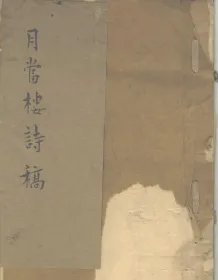 月當樓詩稿